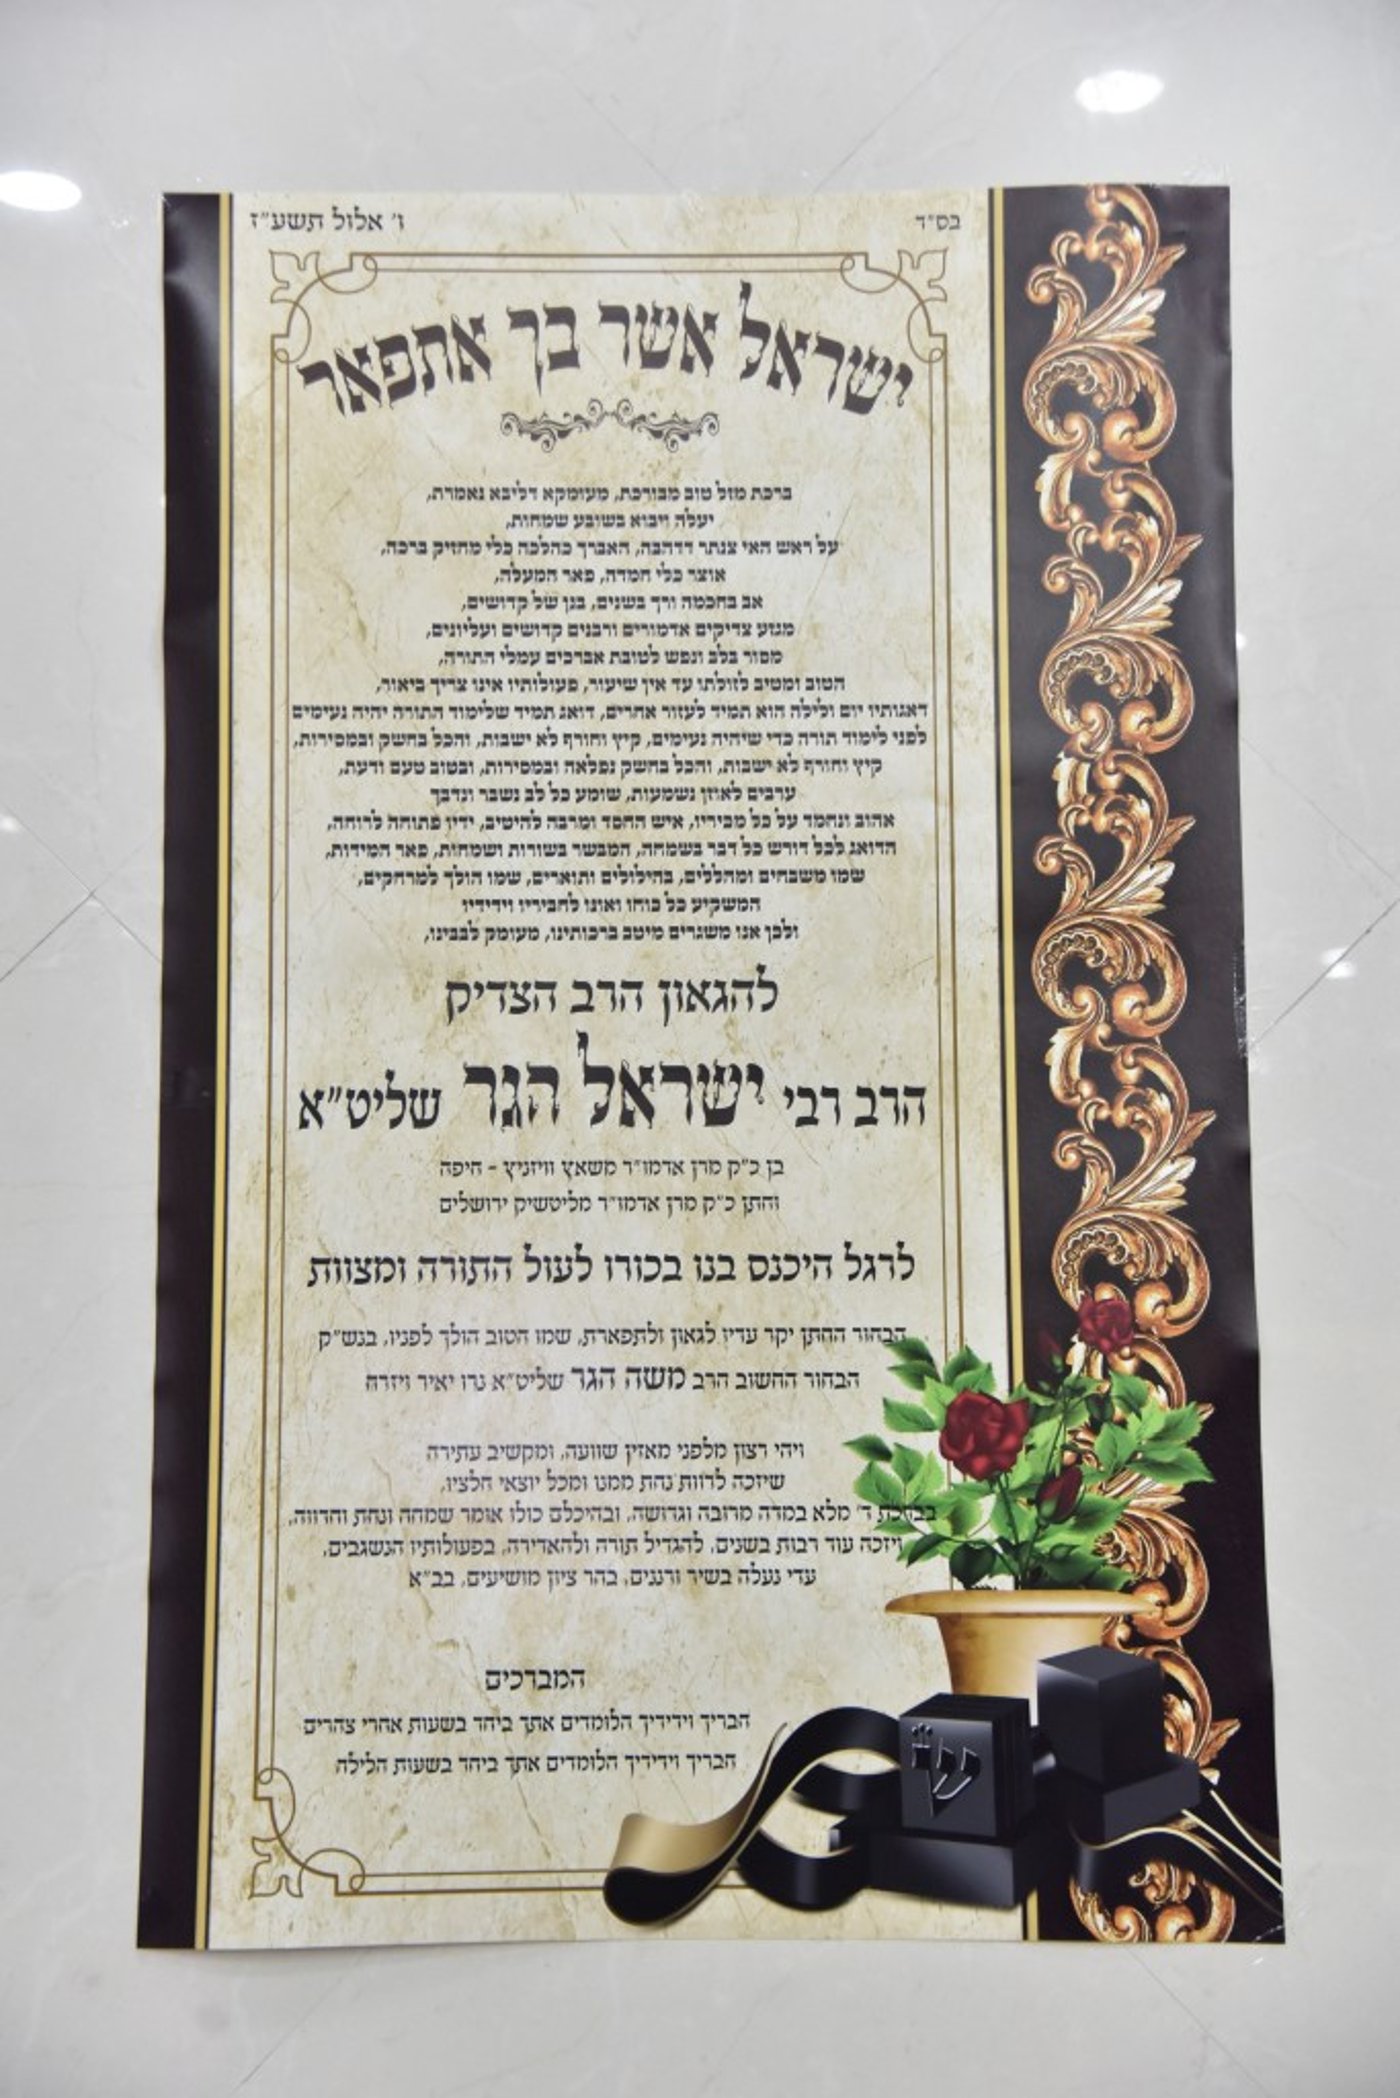 בס"ד
ו' אלול תשע"ז
ישראל אשר בך אתפאר
ברכת מזל טוב מבורכת, מעומקא דליבא נאמרת,
יעלה ויבוא בשובע שמחות,
על ראש האי צנתר דדהבה, האברך כהלכה כלי מחזיק ברכה,
אוצר כלי חמדה, פאר המעלה,
אב בחכמה ורך בשנים, בנן של קדושים,
מגזע צדיקים אדמורים ורבנים קדושים ועליונים,
מסור בלב ונפש לטובת אברכים עמלי התורה,
הטוב ומטיב לזולתו עד אין שיעור, פעולותיו אינו צריך ביאור,
דאגותיו יום ולילה הוא תמיד לעזור אחרים, דואג תמיד שלימוד התורה יהיה נעימים
לפני לימוד תורה כדי שיהיה נעימים, קיץ וחורף לא ישבות, והכל בחשק ובמסירות,
קיץ וחורף לא ישבות, והכל בחשק נפלאה ובמסירות, ובטוב טעם ודעת,
ערבים לאוזן נשמעות, שומע כל לב נשבר ונדכך
אהוב ונחמד על כל מכיריו, איש החסד ומרבה להיטיב, ידיו פתוחה לרוחה,
הדואג לכל דורש כל דבר בשמחה, המבשר בשורות ושמחות, פאר המידות,
שמו משבחים ומהללים, בהילולים ותוארים, שמו הולך למרחקים,
המשקיע כל כוחו ואונו לחביריו וידידיו
ולכן אנו משגרים מיטב ברכותינו, מעומק לבבינו,
להגאון הרב הצדיק
הרב רבי ישראל הגר שליט"א
בן כ"ק מרן אדמו"ר משאץ וויזניץ - חיפה
וחתן כ"ק מרן אדמו"ר מליטשיק ירושלים
לרגל היכנס בנו בכורו לעול התורה ומצוות
הבחור החתן יקר עדיו לגאון ולתפארת, שמו הטוב הולך לפניו, בנש"ק
הבחור החשוב הרב משה הגר שליט"א נרו יאיר ויזרח
ויהי רצון מלפני מאזין שוועה, ומקשיב עתירה
שיזכה לרוות נחת ממנו ומכל יוצאי חלציו,
בברכת ד' מלא במדה מרובה וגדושה, ובהיכלם כולו אומר שמחה ונחת וחדווה,
ויזכה עוד רבות בשנים, להגדיל תורה ולהאדירה, בפעולותיו הנשגבים,
עדי נעלה בשיר ורננים, בהר ציון מושיעים, בב"א
המברכים
חבריך וידידיך הלומדים אתך ביחד בשעות אחרי צהרים
חבריך וידידיך הלומדים אתך ביחד בשעות הלילה
ש